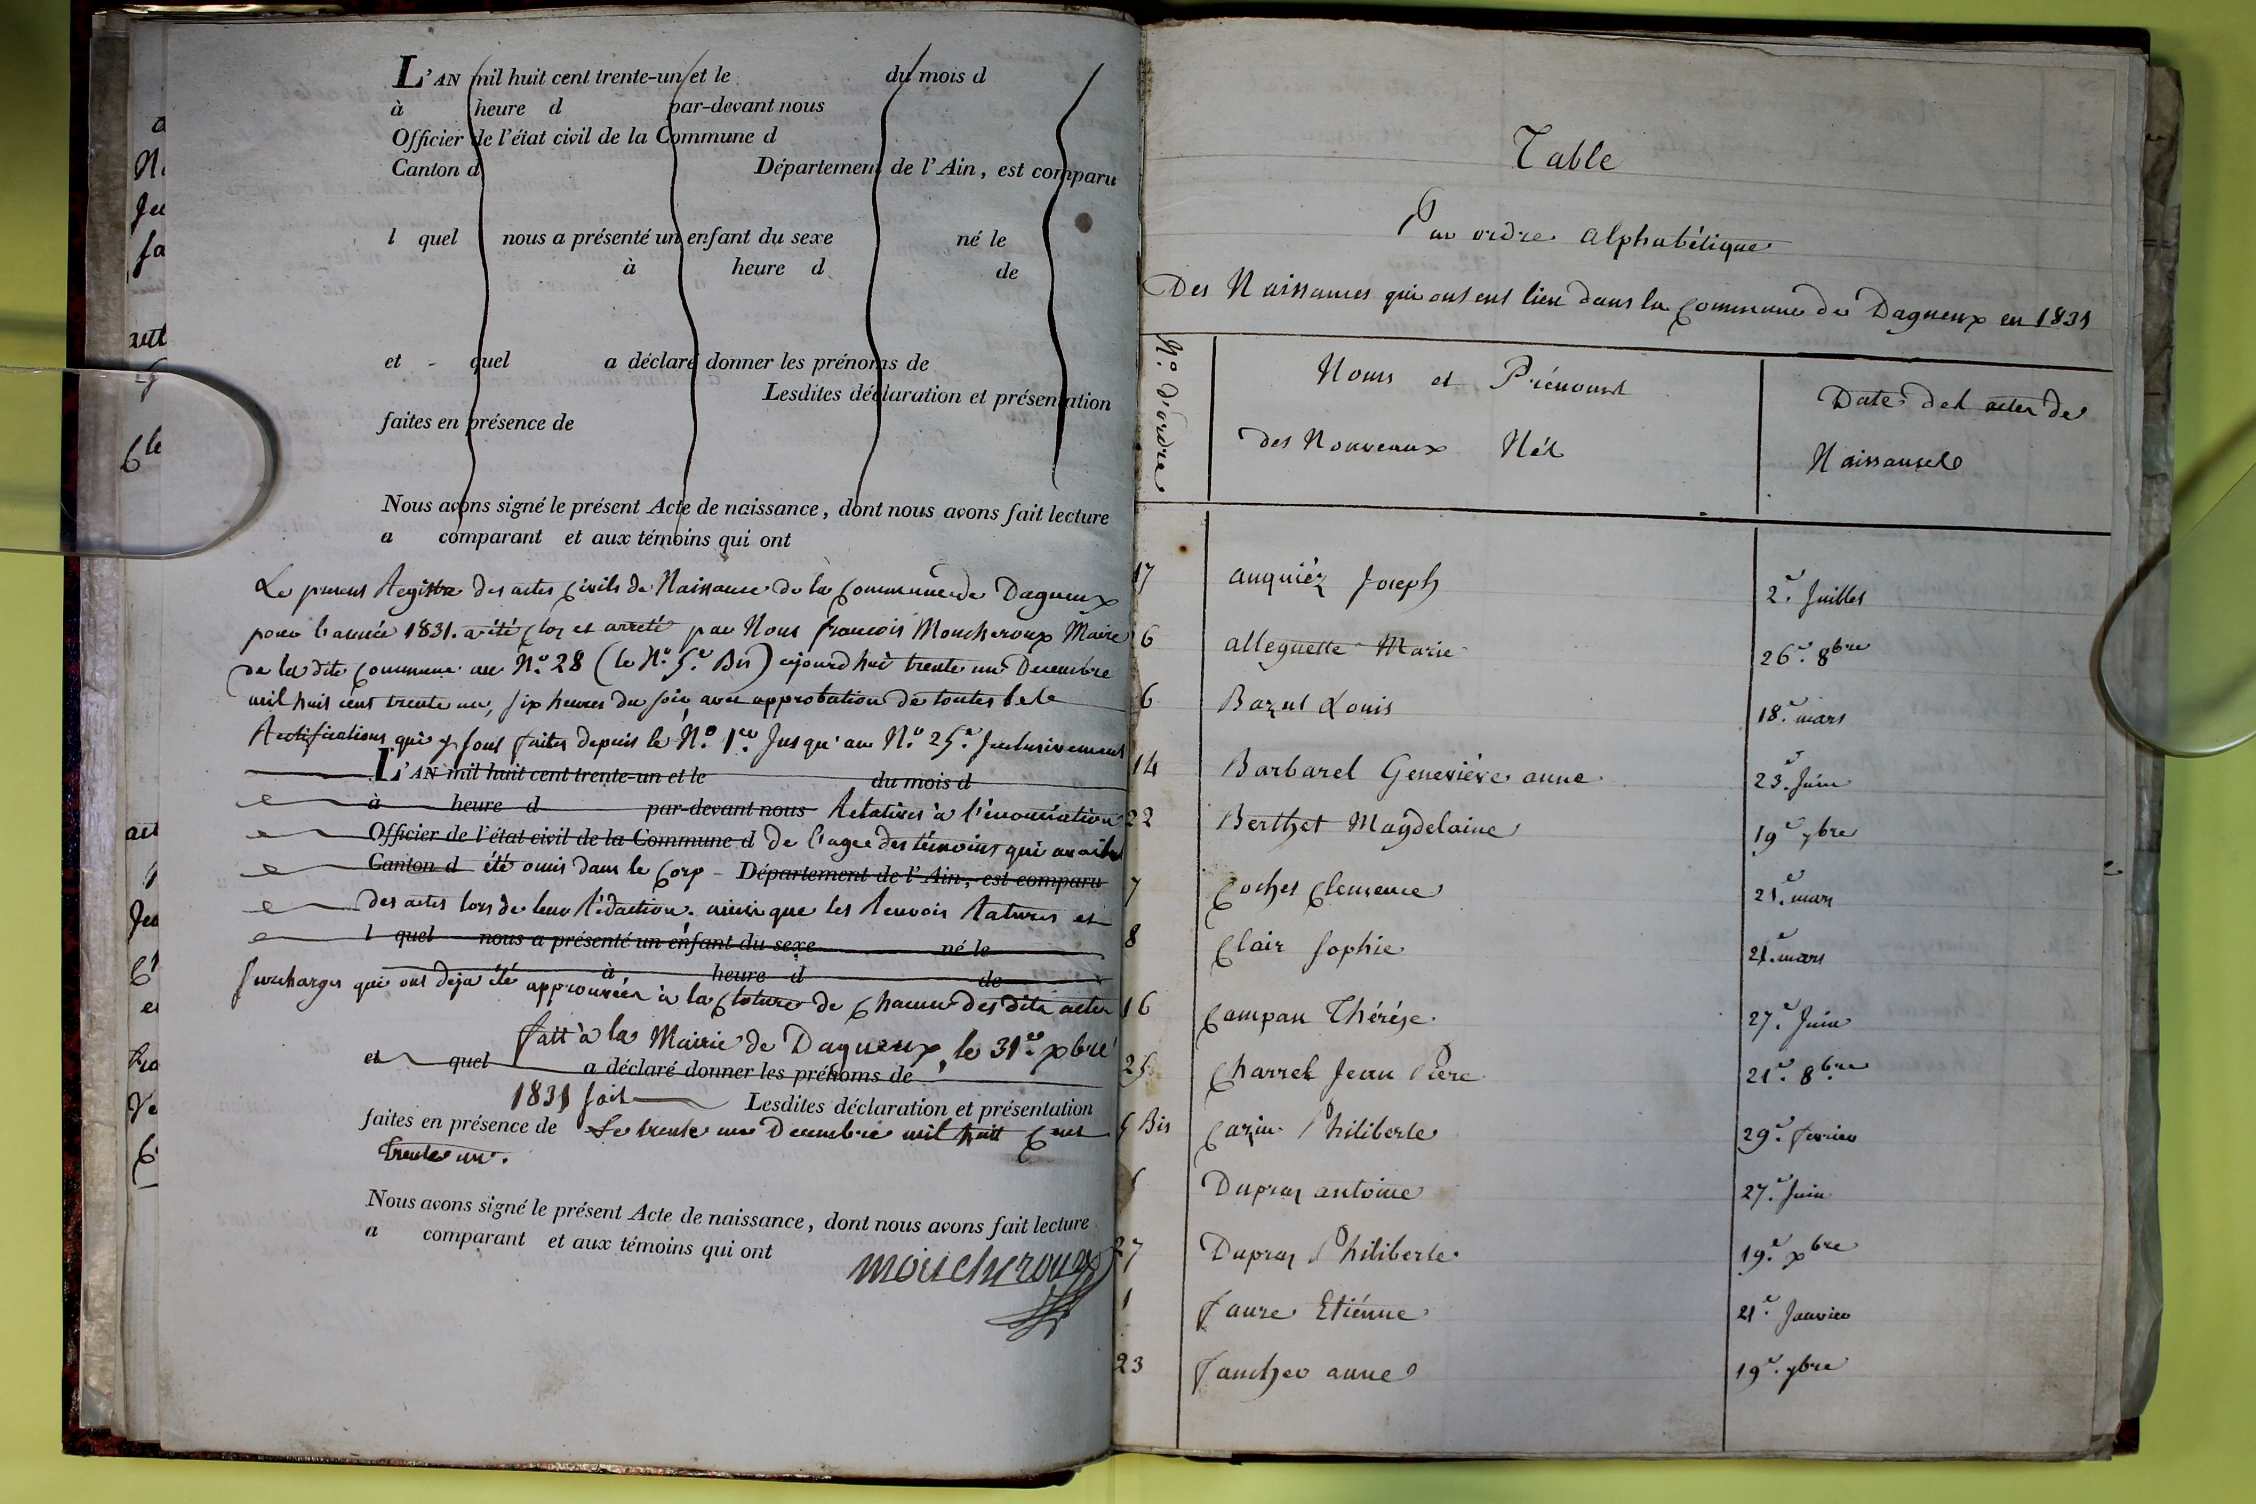 L'AN mil huit cent trente-un et le du mois d
à heure d par-devant nous
Officier de l'état civil de la Commune d
Canton d Département de l'Ain, est comparu
l quel nous a présenté un enfant du sexe né le
à heure d de
et quel a déclaré donner les prénoms de
Lesdites déclaration et présentation
faites en présence de
Nous avons signé le présent Acte de naissance, dont nous avons fait lecture
a comparant et aux témoins qui ont
Le present Registre des actes Civils de Naissance de la Commune de Dagneux
pour l'année 1831. a été Clos et arreté par Nous francois Moucheroux Maire
de la dite Commune au N.o 28 (le N.o 5.e Bis) ajourd'hui trente un Decembre
mil huit cent trente un, six heures du soir, avec approbation de toutes
Rectifications qui y sont faites depuis le N.o 1.er Jusqu'au N.o 25.e Inclusivement
L'AN mil huit cent trente-un et le du mois d
à heure d par-devant nous Relatives à l'énonciation
Officier de l'état civil de la Commune d de l'agee des témoins qui avait
Canton d été omis dans le Corp - Département de l'Ain, est comparu
des actes lors de leur Rédaction. ainsi que les Renvois Ratures et
l quel nous a présenté un enfant du sexe né le
à heure d de
surcharges qui ont deja été approuvées à la Cloture de Chacun des dits actes
Fait à la Mairie de Dagneux, le 31.e xbre
et quel a déclaré donner les prénoms de
1831 soit Lesdites déclaration et présentation
faites en présence de Le trente un Decembre mil huit Cent
trente un.
Nous avons signé le présent Acte de naissance, dont nous avons fait lecture
a comparant et aux témoins qui ont
moucheroux
Table
Par ordre alphabétique
Des Naissances qui ont eut lieu dans la Commune de Dagneux en 1831
N.o d'ordre Noms et Prénoms Date des actes de
des Nouveaux Nés Naissances
17 anquiéz Joseph 2.e Juillet
6 alleguette Marie 26.e 8bre
6 Bazut Louis 18.e mars
14 Barbarel Geneviéve anne 23.e Juin
22 Berthet Magdelaine 19.e 7bre
7 Cochet Clemence 21.e mars
8 Clair Sophie 21.e mars
16 Campan Thérése 27.e Juin
25 Charrel Jean Piere 21.e 8bre
5 Bis Cazin Philiberte 29.e fevrier
Dupraz antoine 27.e Juin
27 Dupraz Philiberte 19.e xbre
1 Faure Etiénne 21.e Janvier
23 Faucher anne 19.e 7bre